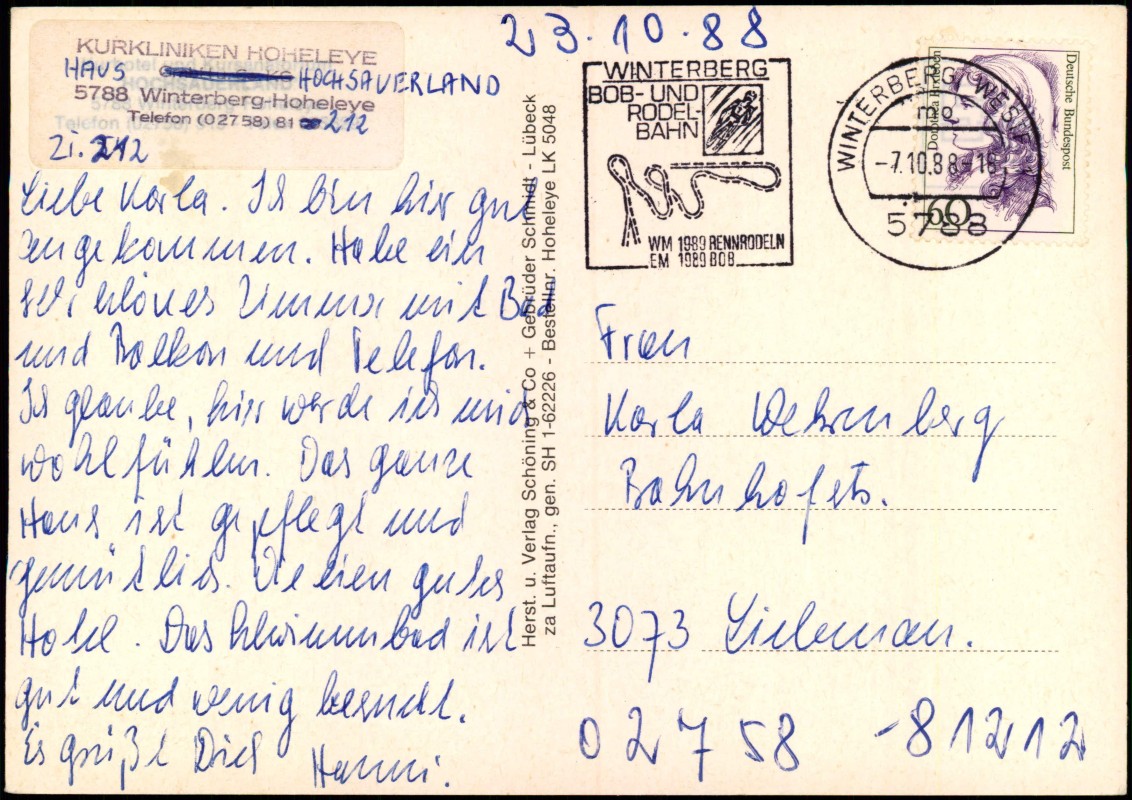 23.10.88
KURKLINIKEN HOHELEYE
HAUS HOCHSAUERLAND
5788 Winterberg-Hoheleye
Telefon (02758) 81 212
Zi. 212
Liebe Karla. Ich bin hier gut
angekommen. Habe ein
sehr schönes Zimmer mit Bad
und Balkon und Telefon.
Ich glaube, hier werde ich mich
wohlfühlen. Das ganze
Haus ist gepflegt und
gemütlich. Wie ein gutes
Hotel. Das Schwimmbad ist
gut und wenig besucht.
Es grüßt Dich Hanni.
Herst. u. Verlag Schöning & Co + Gebrüder Schmidt - Lübeck
za Luftaufn., gen. SH 1-62226 - Bestellnr. Hoheleye LK 5048
WINTERBERG
BOB- UND
RODEL-
BAHN
WM 1989 RENNRODELN
EM 1989 BOB
WINTERBERG, WESTF
mo
-7.10.88-18
5788
Deutsche Bundespost
60
Frau
Karla Wehrenberg
Bahnhofstr.
3073 Liebenau.
02758 - 81212